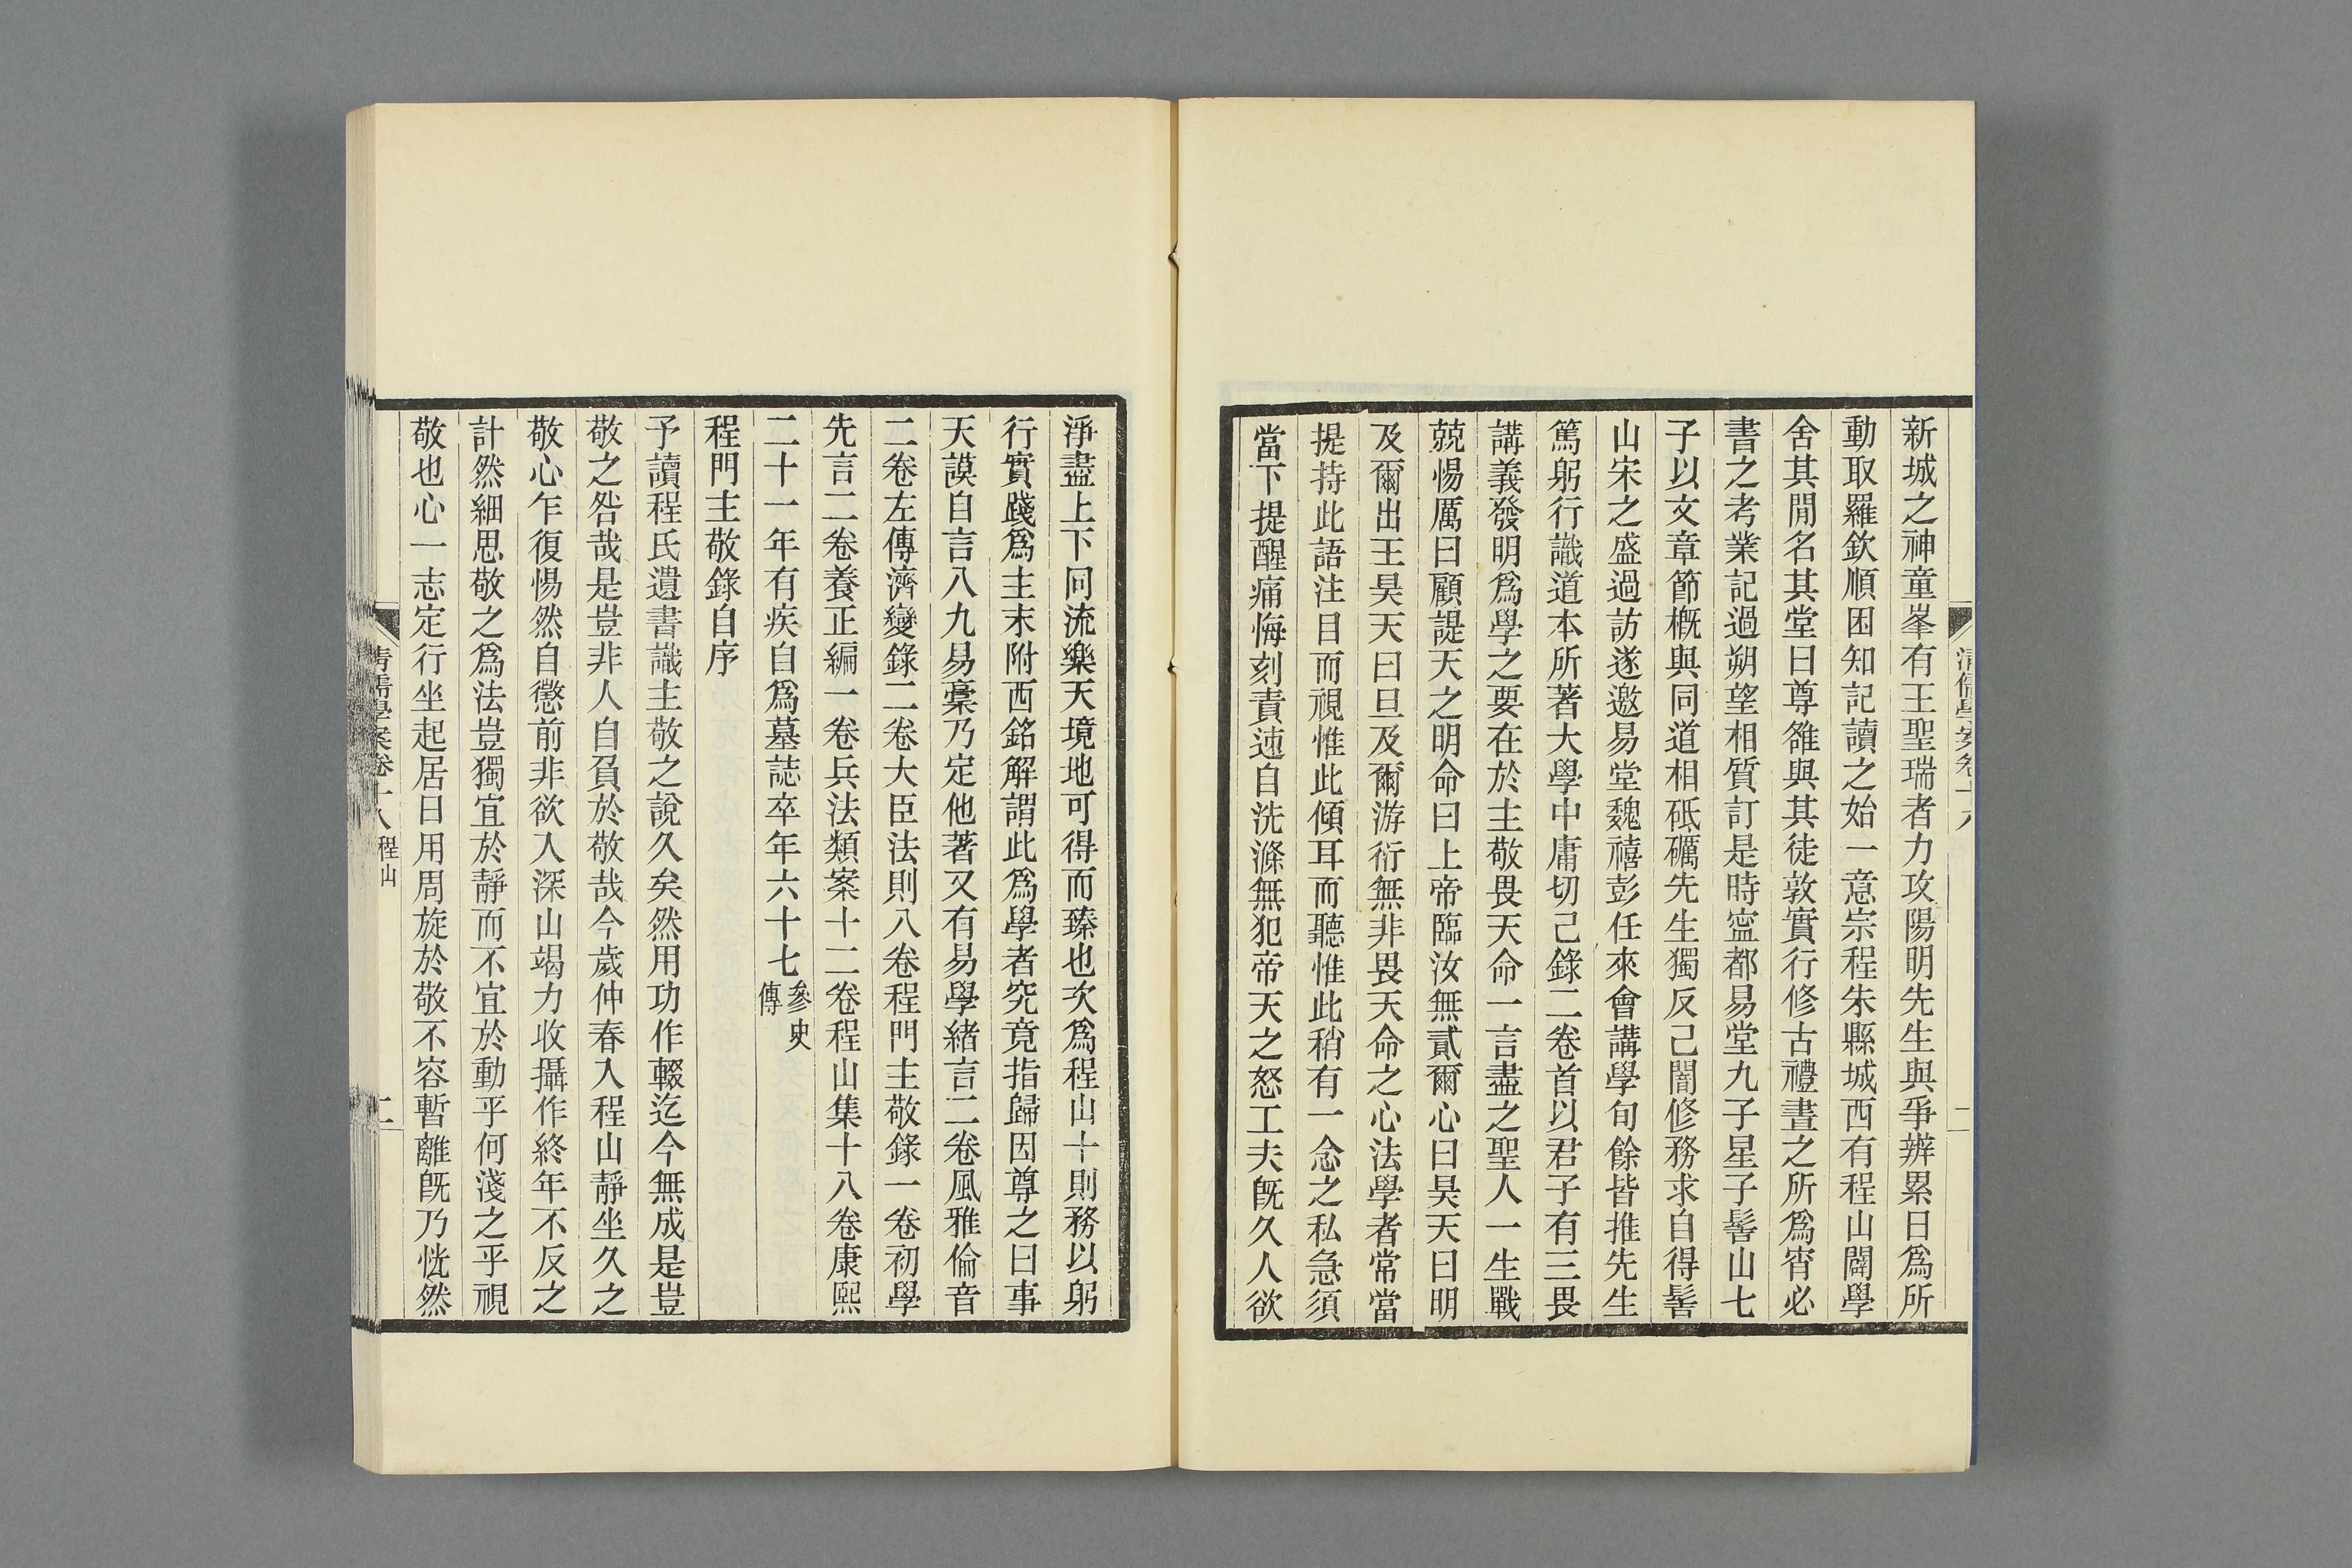 清儒學案卷十八
二
新城之神童峯有王聖瑞者力攻陽明先生與爭辨累日爲所
動取羅欽順困知記讀之始一意宗程朱縣城西有程山闢學
舍其閒名其堂曰尊雒與其徒敦實行修古禮晝之所爲宵必
書之考業記過朔望相質訂是時寍都易堂九子星子髻山七
子以文章節槪與同道相砥礪先生獨反己闇修務求自得髻
山宋之盛過訪遂邀易堂魏禧彭任來會講學旬餘皆推先生
篤躬行識道本所著大學中庸切己錄二卷首以君子有三畏
講義發明爲學之要在於主敬畏天命一言盡之聖人一生戰
兢惕厲曰顧諟天之明命曰上帝臨汝無貳爾心曰昊天曰明
及爾出王昊天曰旦及爾游衍無非畏天命之心法學者常當
提持此語注目而視惟此傾耳而聽惟此稍有一念之私急須
當下提醒痛悔刻責速自洗滌無犯帝天之怒工夫旣久人欲
淨盡上下同流樂天境地可得而臻也次爲程山十則務以躬
行實踐爲主末附西銘解謂此爲學者究竟指歸因尊之曰事
天謨自言八九易稾乃定他著又有易學緒言二卷風雅倫音
二卷左傳濟變錄二卷大臣法則八卷程門主敬錄一卷初學
先言二卷養正編一卷兵法類案十二卷程山集十八卷康熙
二十一年有疾自爲墓誌卒年六十七參史傳
程門主敬錄自序
予讀程氏遺書識主敬之說久矣然用功作輟迄今無成是豈
敬之咎哉是豈非人自負於敬哉今歲仲春入程山靜坐久之
敬心乍復惕然自懲前非欲入深山竭力收攝作終年不反之
計然細思敬之爲法豈獨宜於靜而不宜於動乎何淺之乎視
敬也心一志定行坐起居日用周旋於敬不容暫離旣乃恍然
清儒學案卷十八 程山
二